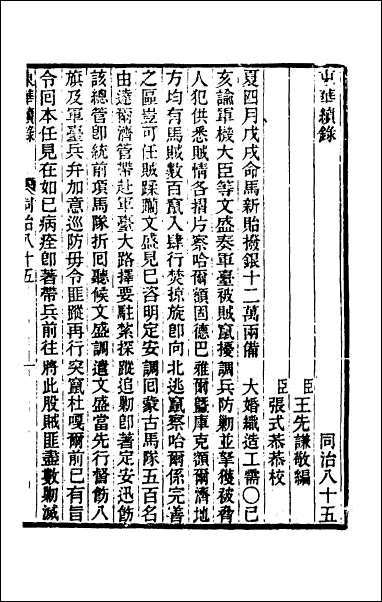 東華續錄　同治八十五
臣王先謙敬編
臣張式恭恭校
夏四月戊戌命馬新貽撥銀十二萬兩備　大婚織造工需○己
亥諭軍機大臣等文盛奏軍臺被賊竄擾調兵防勦並拏獲被脅
人犯供悉賊情各摺片察哈爾額固德巴雅爾暨庫克額爾濟地
方均有馬賊數百竄入肆行焚掠旋卽向北逃竄察哈爾係完善
之區豈可任賊蹂躪文盛見已咨明定安調回蒙古馬隊五百名
由達爾濟管帶赴軍臺大路擇要駐紮探蹤追勦卽著定安迅飭
該總管卽統前項馬隊折回聽候文盛調遣文盛當先行督飭八
旗及軍臺兵弁加意巡防毋令匪蹤再行突竄杜嘎爾前已有旨
令回本任見在如已病痊卽著帶兵前往將此股賊匪盡數勦滅
東華續錄　同治八十五